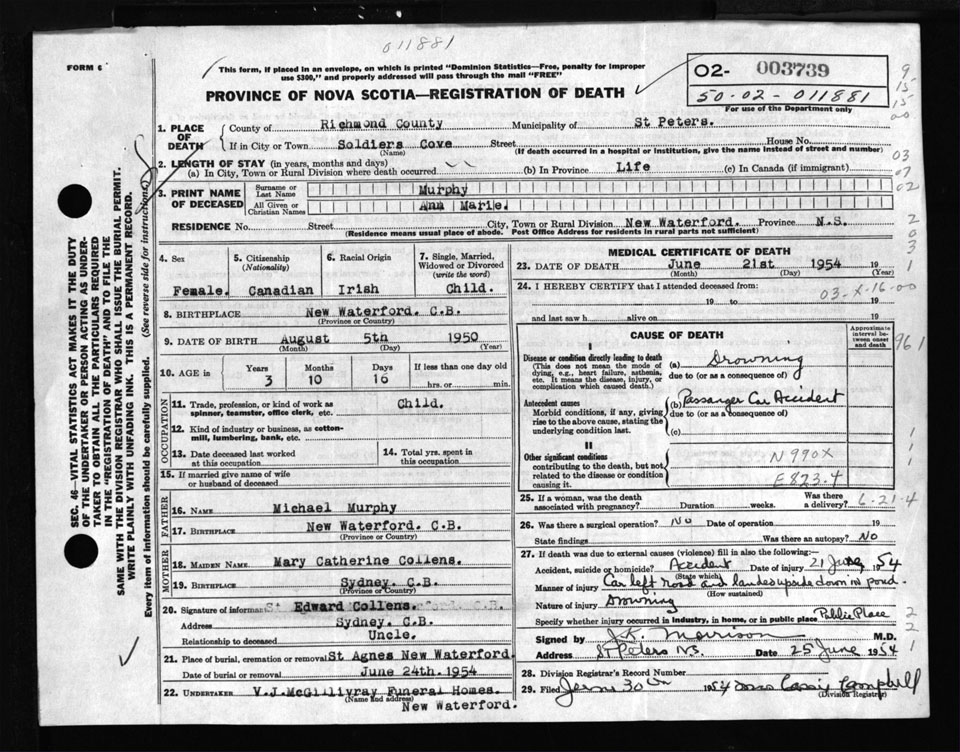 011881
FORM 6
This form, if placed in an envelope, on which is printed "Dominion Statistics—Free, penalty for improper
use $300," and properly addressed will pass through the mail "FREE"
02- 003739
50-02-011881
For use of the Department only
PROVINCE OF NOVA SCOTIA—REGISTRATION OF DEATH
1. PLACE OF DEATH { County of Richmond County Municipality of St Peters.
If in City or Town Soldiers Cove Street House No.
(Name) (If death occurred in a hospital or institution, give the name instead of street and number)
2. LENGTH OF STAY (in years, months and days)
(a) In City, Town or Rural Division where death occurred (b) In Province Life (c) In Canada (if immigrant)
3. PRINT NAME OF DECEASED { Surname or Last Name Murphy
All Given or Christian Names Ann Marie.
RESIDENCE No. Street City, Town or Rural Division New Waterford. Province N.S.
(Residence means usual place of abode. Post Office Address for residents in rural parts not sufficient)
4. Sex Female.
5. Citizenship (Nationality) Canadian
6. Racial Origin Irish
7. Single, Married, Widowed or Divorced (write the word) Child.
8. BIRTHPLACE New Waterford. C.B.
(Province or Country)
9. DATE OF BIRTH August 5th 1950
(Month) (Day) (Year)
10. AGE in Years 3 Months 10 Days 16 If less than one day old
hrs. or min.
OCCUPATION
11. Trade, profession, or kind of work as
spinner, teamster, office clerk, etc. Child.
12. Kind of industry or business, as cotton-
mill, lumbering, bank, etc.
13. Date deceased last worked
at this occupation
14. Total yrs. spent in
this occupation
15. If married give name of wife
or husband of deceased
FATHER
16. NAME Michael Murphy
17. BIRTHPLACE New Waterford. C.B.
(Province or Country)
MOTHER
18. MAIDEN NAME Mary Catherine Collens.
19. BIRTHPLACE Sydney. C.B.
(Province or Country)
20. Signature of informant Edward Collens.
Address Sydney. C.B.
Relationship to deceased Uncle.
21. Place of burial, cremation or removal St Agnes New Waterford.
Date of burial or removal June 24th. 1954
22. UNDERTAKER V.J.McGillivray Funeral Homes.
(Name and address)
New Waterford.
MEDICAL CERTIFICATE OF DEATH
23. DATE OF DEATH June 21st 1954 19
(Month) (Day) (Year)
24. I HEREBY CERTIFY that I attended deceased from:
19 to 19
03-X-16-00
and last saw h alive on 19
CAUSE OF DEATH
Approximate interval between onset and death
I
Disease or condition directly leading to death
(This does not mean the mode of
dying, e.g., heart failure, asthenia,
etc. It means the disease, injury, or
complication which caused death.)
(a) Drowning
due to (or as a consequence of)
Antecedent causes
Morbid conditions, if any, giving
rise to the above cause, stating the
underlying condition last.
(b) Passanger Car Accident
due to (or as a consequence of)
(c)
II
Other significant conditions
contributing to the death, but not
related to the disease or condition
causing it.
N990X
E823.4
25. If a woman, was the death
associated with pregnancy? Duration weeks. Was there
a delivery? 6-21-4
26. Was there a surgical operation? No Date of operation 19
State findings Was there an autopsy? No
27. If death was due to external causes (violence) fill in also the following:
Accident, suicide or homicide? Accident Date of injury 21 June 1954
(State which)
Manner of injury Car left road and landed upside down in pond.
(How sustained)
Nature of injury Drowning
Specify whether injury occurred in industry, in home, or in public place Public Place
Signed by J.K. Morrison M.D.
Address St Peters NS. Date 25 June 1954
28. Division Registrar's Record Number
29. Filed 30th 1954 Cassie Campbell
(Division Registrar)
SEC. 46—VITAL STATISTICS ACT MAKES IT THE DUTY
OF THE UNDERTAKER OR PERSON ACTING AS UNDER-
TAKER TO OBTAIN ALL THE PARTICULARS REQUIRED
IN THE "REGISTRATION OF DEATH" AND TO FILE THE
SAME WITH THE DIVISION REGISTRAR WHO SHALL ISSUE THE BURIAL PERMIT.
WRITE PLAINLY WITH UNFADING INK. THIS IS A PERMANENT RECORD.
Every item of information should be carefully supplied. (See reverse side for instructions)
9
15
15
00
03
07
02
2
0
3
1
961
1
1
1
2
2
1